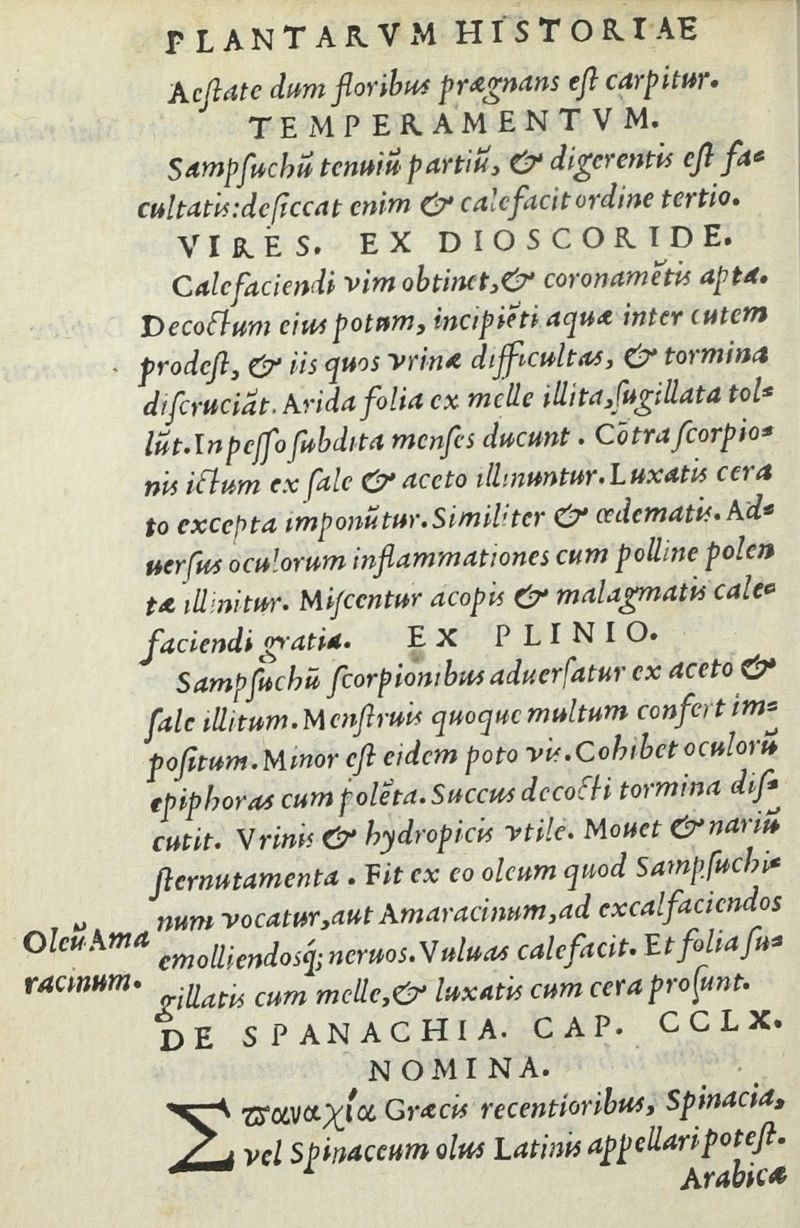 PLANTARVM HISTORIAE
Aeſtate dum floribus prægnans eſt carpitur.
TEMPERAMENTVM.
Sampſuchū tenuiū partiū, & digerentis eſt fa-
cultatis: deſiccat enim & calefacit ordine tertio.
VIRES. EX DIOSCORIDE.
Calefaciendi vim obtinet, & coronamētis apta.
Decoctum eius potum, incipiēti aquæ inter cutem
prodeſt, & iis quos vrinæ difficultas, & tormina
diſcruciāt. Arida folia ex melle illita, ſugillata tol-
lūt. In peſſo ſubdita menſes ducunt. Cōtra ſcorpio-
nis ictum ex ſale & aceto illinuntur. Luxatis cera
to excepta imponūtur. Similiter & œdematis. Ad-
uerſus oculorum inflammationes cum polline polen
tæ illinitur. Miſcentur acopis & malagmatis cale-
faciendi gratia. EX PLINIO.
Sampſuchū ſcorpionibus aduerſatur ex aceto &
ſale illitum. Menſtruis quoque multum confert im-
poſitum. Minor eſt eidem poto vis. Cohibet oculorū
epiphoras cum polēta. Succus decocti tormina diſ-
cutit. Vrinis & hydropicis vtile. Mouet & nariū
ſternutamenta. Fit ex eo oleum quod Sampſuchi-
num vocatur, aut Amaracinum, ad excalfaciendos
Oleū Ama
racinum.
emolliendosq́; neruos. Vuluas calefacit. Et folia ſu-
gillatis cum melle, & luxatis cum cera proſunt.
DE SPANACHIA. CAP. CCLX.
NOMINA.
Σϖαναχία Græcis recentioribus, Spinacia,
vel Spinaceum olus Latinis appellari poteſt.
Arabicæ